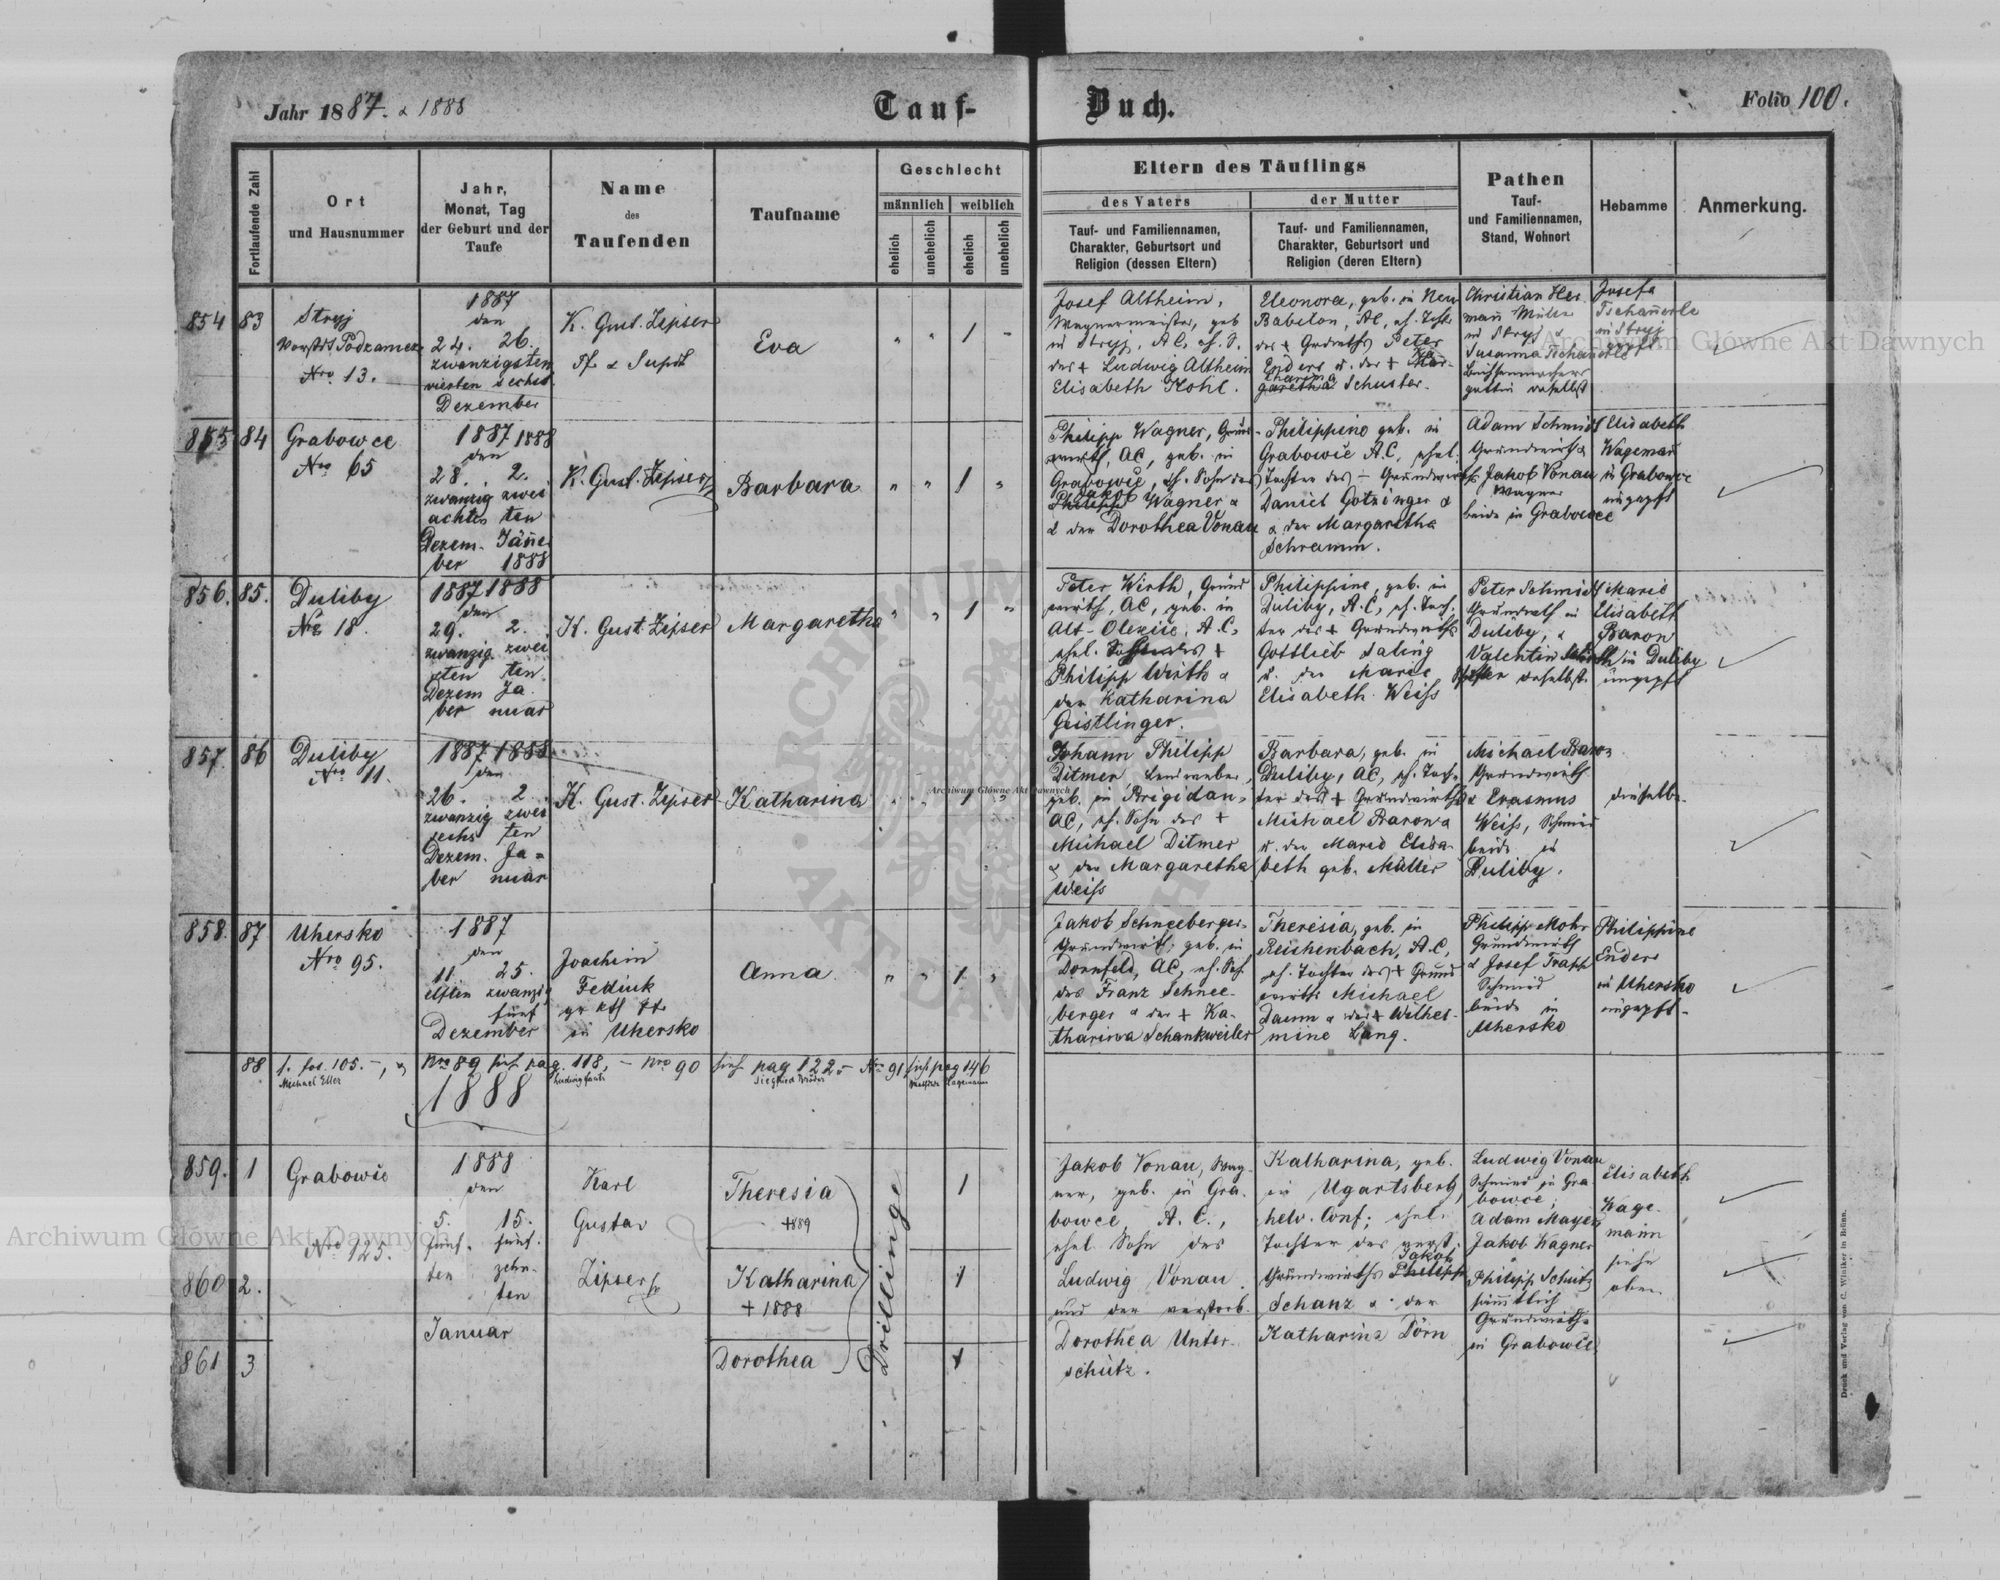 Jahr 1887. & 1888
Tauf-Buch.
Folio 100.
Fortlaufende Zahl
Ort
und Hausnummer
Jahr,
Monat, Tag
der Geburt und der
Taufe
Name
des
Taufenden
Taufname
Geschlecht
männlich
weiblich
ehelich
unehelich
ehelich
unehelich
Eltern des Täuflings
des Vaters
Tauf- und Familiennamen,
Charakter, Geburtsort und
Religion (dessen Eltern)
der Mutter
Tauf- und Familiennamen,
Charakter, Geburtsort und
Religion (deren Eltern)
Pathen
Tauf-
und Familiennamen,
Stand, Wohnort
Hebamme
Anmerkung.
854 83
Stryj
Vorstdt Podzamcze
Nro 13.
1887
den
24. 26.
zwanzigsten
vierten sechst
Dezember
K. Gust. Zipser
Pf. & Supdt
Eva
" " 1 "
Josef Altheim,
Wagnermeister, geb
in Stryj, AC, eh. S.
des + Ludwig Altheim
Elisabeth Kohl.
Eleonora, geb. in Neu
Babelon, AC, eh. Tocht
des + Grdwirths Peter
Enders u. der + Mar-
Ka
tharina
garetha Schuster.
Christian Her
mann Müller
in Stryj &
Susanna Tschanerle
Büchsenmachers
gattin daselbst
Josefa
Tschannerle
in Stryj
gepft
855 84
Grabowce
Nro 65
1887 1888
den
28. 2.
zwanzig zwei
achten ten
Dezem- Jänner
ber 1888
K. Gust. Zipser
Barbara
" " 1 "
Philipp Wagner, Grund-
wirth, AC, geb. in
Grabowce, eh. Sohn des
Jakob
Philipp Wagner &
& der Dorothea Vonau
Philippine geb. in
Grabowce A.C, ehel.
Tochter des Grundwirths
Daniel Gotzinger &
& der Margaretha
Schramm.
Adam Schmidt
Grundwirth &
Jakob Vonau
Wagner
beide in Grabowce
Elisabeth
Wagemann
in Grabowce
ungepft
856. 85.
Duliby
Nro 18.
1887 1888
den
29. 2.
zwanzig. zwei
ten ten.
Dezem Ja
ber nuar
K. Gust. Zipser
Margaretha
" " 1 "
Peter Wirth, Grund
wirth, AC, geb. in
Alt-Oleksic, A.C,
ehel. Sohn des +
Philipp Wirth &
der Katharina
Geistlinger.
Philippine, geb. in
Duliby, A.C, eh. Toch-
ter des + Grundwirths
Gottlieb Saling
u. der Marie
Elisabeth Weiss
Peter Schmidt
Grundwirth in
Duliby, &
Valentin
daselbst.
Marie
Elisabeth
Baron
in Duliby
ungepft
857. 86
Duliby
Nro 11.
1887 1888
den
26. 2.
zwanzig zwei
sechs ten
Dezem. Ja-
ber nuar
K. Gust. Zipser
Katharina
" " 1 "
Johann Philipp
Ditmer Leinweber,
geb. in Brigidau,
AC, eh. Sohn des +
Michael Ditmer
& der Margaretha
Weiss
Barbara, geb. in
Duliby, AC, eh. Toch-
ter des + Grundwirths
Michael Baron &
u. der Marie Elisa-
beth geb. Müller
Michael Baron
Grundwirth
& Erasmus
Weiss, Schmied
beide in
Duliby.
dieselbe.
858. 87
Uhersko
Nro 95.
1887
den
11. 25.
elften zwanzig
fünf
Dezember
Joachim
Fediuk
gr kth Pfr
in Uhersko
Anna
" " 1 "
Jakob Schneeberger
Grundwirth, geb. in
Dornfeld, AC, eh. Soh
des Franz Schnee-
berger & der + Ka-
tharina Schankweiler
Theresia, geb. in
Reichenbach, A.C,
eh. Tochter des + Grund
wirths Michael
Daum & der + Wilhel-
mine Lang.
Philipp Mohr
Grundwirth
& Josef Trapp
Schmied
beide in
Uhersko
Philippine
Enders
in Uhersko
ungepft.
88 s. fol. 105. Nro 89 sieh pag. 118, - Nro 90 sieh pag 122 - Nro 91 sieh pag 146
Michael Eller
1888
859. 1
Grabowce
Nro 125.
1888
den
5. 15.
fünf- fünf-
ten zehn-
ten
Januar
Karl
Gustav
Zipser
Theresia
+ 1889
1
860 2.
Katharina
+ 1888
1
861 3
Dorothea
1
Drillinge
Jakob Vonau, Wag-
ner, geb. in Gra-
bowce, A.C.,
ehel. Sohn des
Ludwig Vonau
und der verstorb.
Dorothea Unter-
schütz.
Katharina, geb.
in Ugartsberg,
helv. Conf; ehel.
Tochter des verst.
Jakob
Grundwirths Philipp
Schanz & der
Katharina Dörn
Ludwig Vonau
Schmied in Gra
bowce;
Adam Mayer
Jakob Wagner
Philipp Schütz
sämmtlich
Grundwirthe
in Grabowce
Elisabeth
Wage-
mann
siehe
oben
Druck und Verlag von C. Winiker in Brünn.
Archiwum Główne Akt Dawnych
Archiwum Główne Akt Dawnych
Archiwum Główne Akt Dawnych